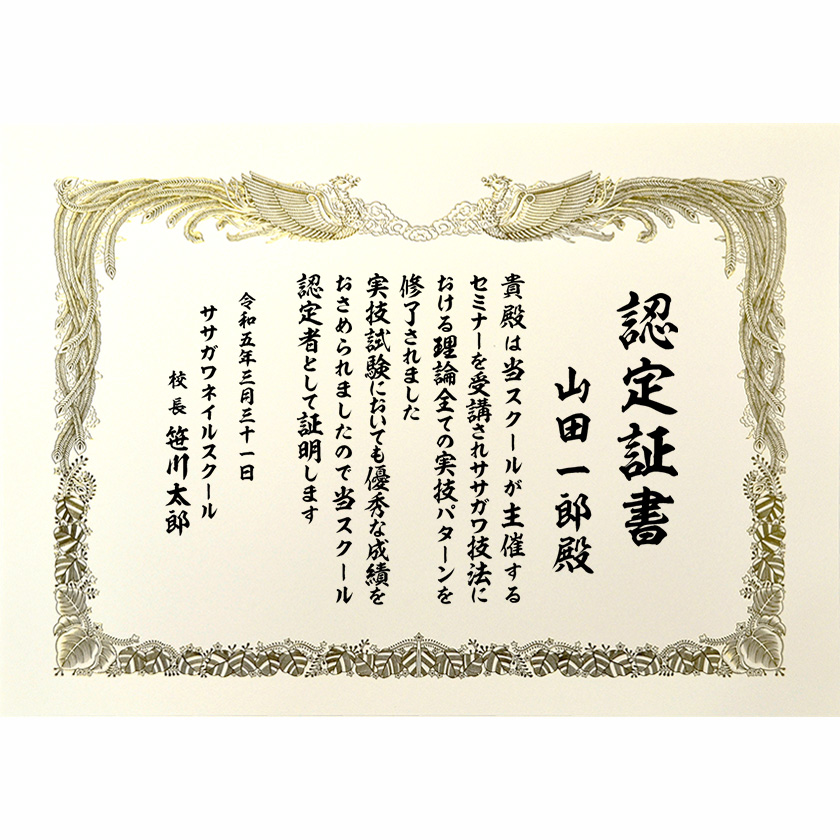 認定証書
山田一郎殿
貴殿は当スクールが主催する
セミナーを受講されササガワ技法に
おける理論全ての実技パターンを
修了されました
実技試験においても優秀な成績を
おさめられましたので当スクール
認定者として証明します
令和五年三月三十一日
ササガワネイルスクール
校長 笹川太郎